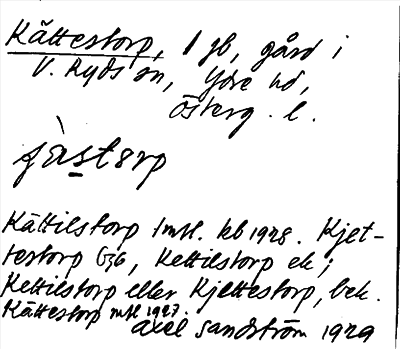 Kättestorp, 1 gb, gård i
V. Ryds sn, Ydre hd,
Österg. l.
jàstɜrp
Kättilstorp 1 mtl. kb 1928. Kjet-
testorp G36, Kettilstorp ek;
Kettilstorp eller Kjettestorp, bek.
Kättestorp mtl 1927.
Axel Sandström 1929